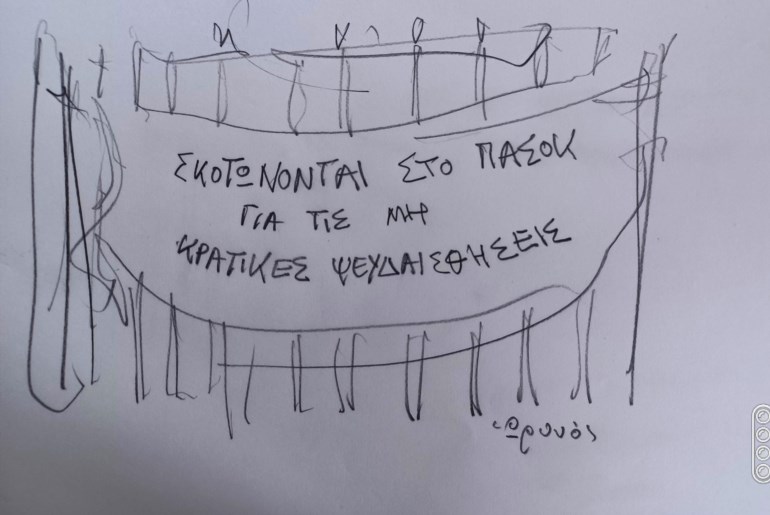 ΣΚΟΤΩΝΟΝΤΑΙ ΣΤΟ ΠΑΣΟΚ
ΓΙΑ ΤΙΣ ΜΗ
ΚΡΑΤΙΚΕΣ ΨΕΥΔΑΙΣΘΗΣΕΙΣ